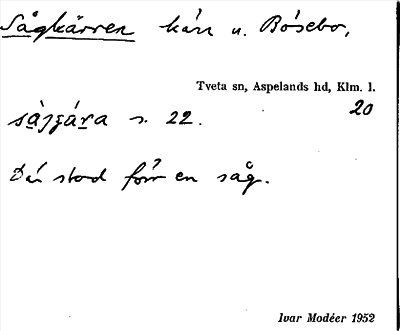 Sågkärren kärr u. Bösebo,
Tveta sn, Aspelands hd, Klm. l.
20
s. 22.
Där stod förr en såg.
Ivar Modéer 1952